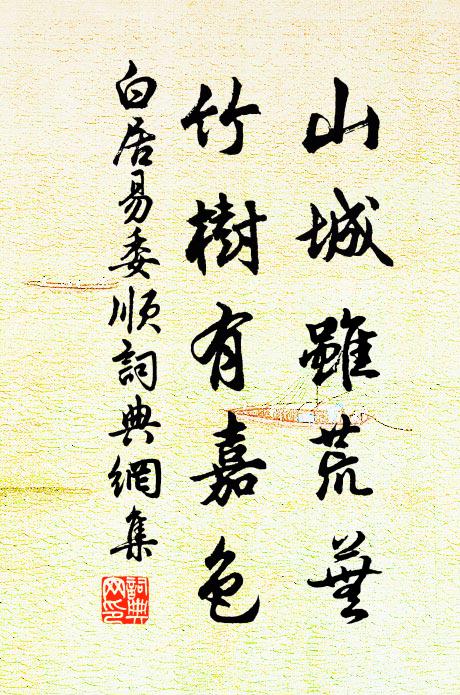 山城雖荒蕪
竹樹有嘉色
白居易委順詞典網集
詞典網印